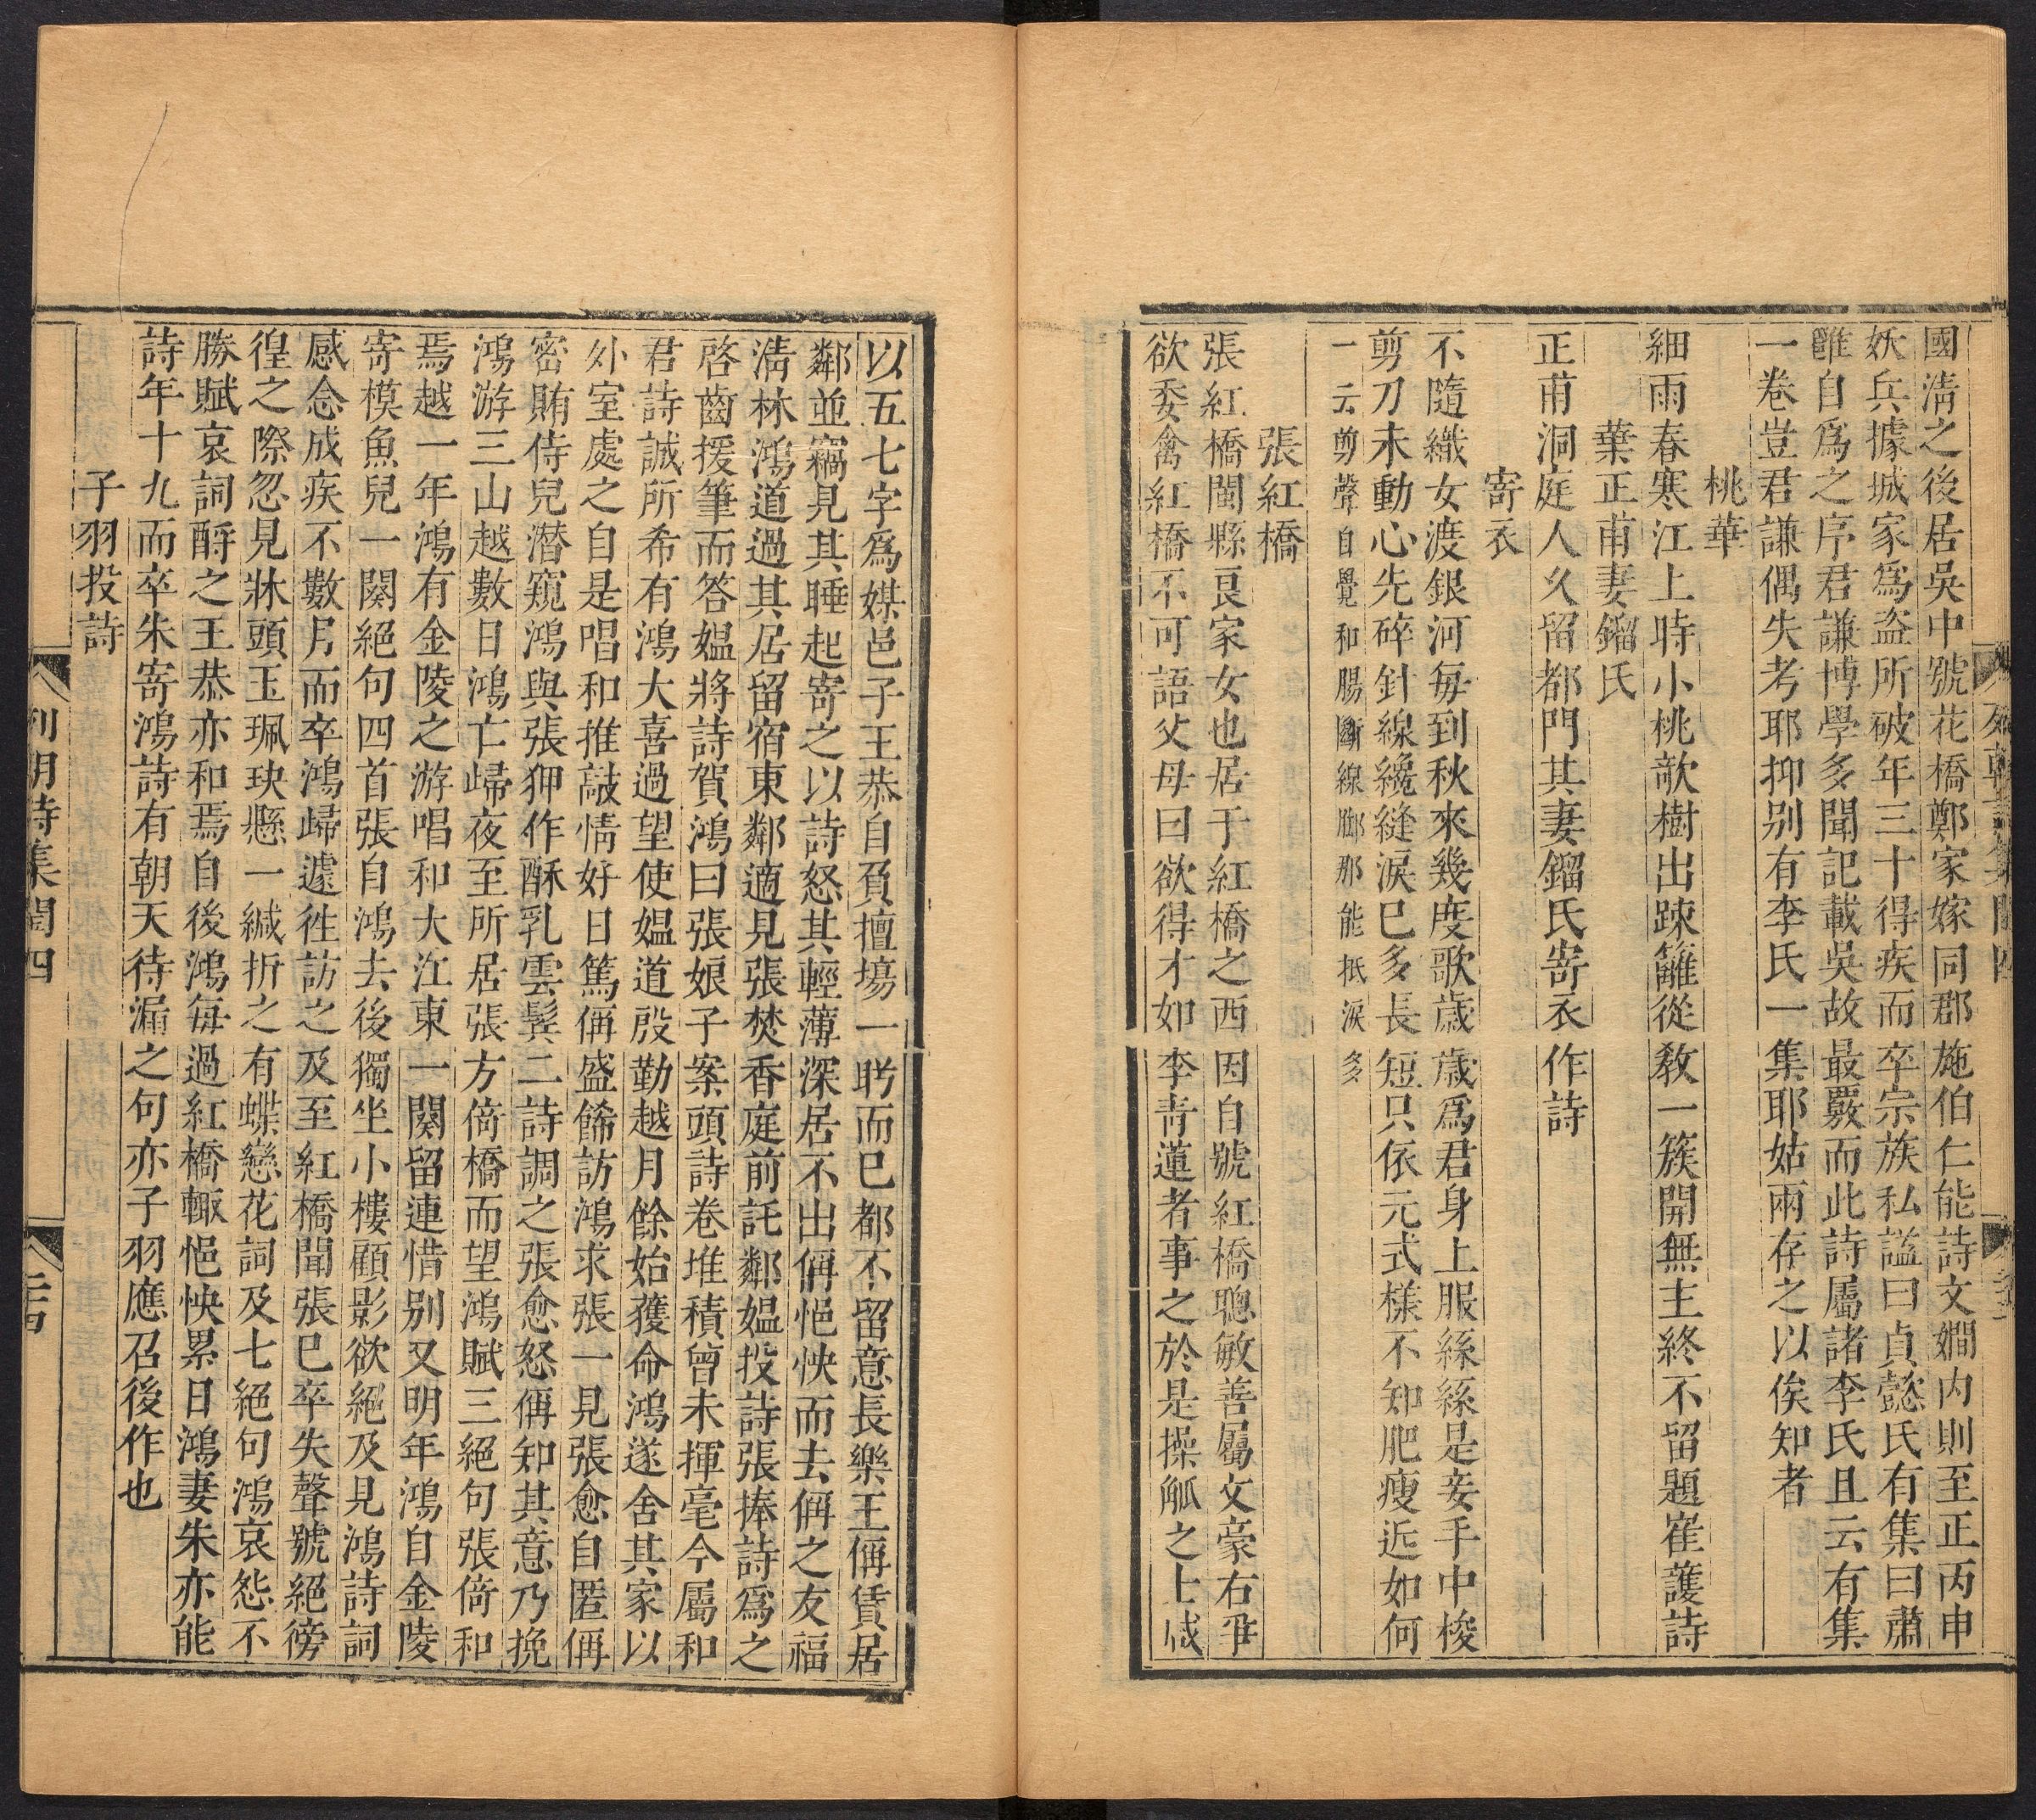 國淸之後居吳中號花橋鄭家嫁同郡施伯仁能詩文嫺內則至正丙申
妖兵據城家爲盗所破年三十得疾而卒宗族私謚曰貞懿氏有集曰肅
雝自爲之序君謙博學多聞記載吳故最覈而此詩屬諸李氏且云有集
一卷豈君謙偶失考耶抑别有李氏一集耶姑兩存之以俟知者
桃華
細雨春寒江上時小桃欹樹出踈籬從教一簇開無主終不留題崔護詩
葉正甫妻鎦氏
正甫洞庭人久留都門其妻鎦氏寄衣作詩
寄衣
不隨織女渡銀河每到秋來幾度歌歲歲爲君身上服絲絲是妾手中梭
剪刀未動心先碎針線纔縫淚已多長短只依元式樣不知肥瘦近如何
一云剪聲自覺和腸斷線脚那能抵淚多
張紅橋
張紅橋閩縣良家女也居于紅橋之西因自號紅橋聰敏善屬文豪右爭
欲委禽紅橋不可語父母曰欲得才如李靑蓮者事之於是操觚之士咸
以五七字爲媒邑子王恭自負擅塲一盼而已都不留意長樂王偁賃居
鄰並竊見其睡起寄之以詩怒其輕薄深居不出偁悒怏而去偁之友福
淸林鴻道過其居留宿東鄰適見張焚香庭前託鄰媼投詩張捧詩爲之
啓齒援筆而答媼將詩賀鴻曰張娘子案頭詩卷堆積曾未揮毫今屬和
君詩誠所希有鴻大喜過望使媼道殷勤越月餘始獲命鴻遂舍其家以
外室處之自是唱和推敲情好日篤偁盛餙訪鴻求張一見張愈自匿偁
密賄侍兒潜窺鴻與張狎作酥乳雲鬟二詩調之張愈怒偁知其意乃挽
鴻游三山越數日鴻亡歸夜至所居張方倚橋而望鴻賦三絕句張倚和
焉越一年鴻有金陵之游唱和大江東一闋留連惜别又明年鴻自金陵
寄模魚兒一闋絕句四首張自鴻去後獨坐小樓顧影欲絕及見鴻詩詞
感念成疾不數月而卒鴻歸遽徃訪之及至紅橋聞張已卒失聲號絕徬
徨之際忽見牀頭玉珮玦懸一緘拆之有蝶戀花詞及七絕句鴻哀怨不
勝賦哀詞酹之王恭亦和焉自後鴻每過紅橋輙悒怏累日鴻妻朱亦能
詩年十九而卒朱寄鴻詩有朝天待漏之句亦子羽應召後作也
子羽投詩
列朝詩集閏四
二十四